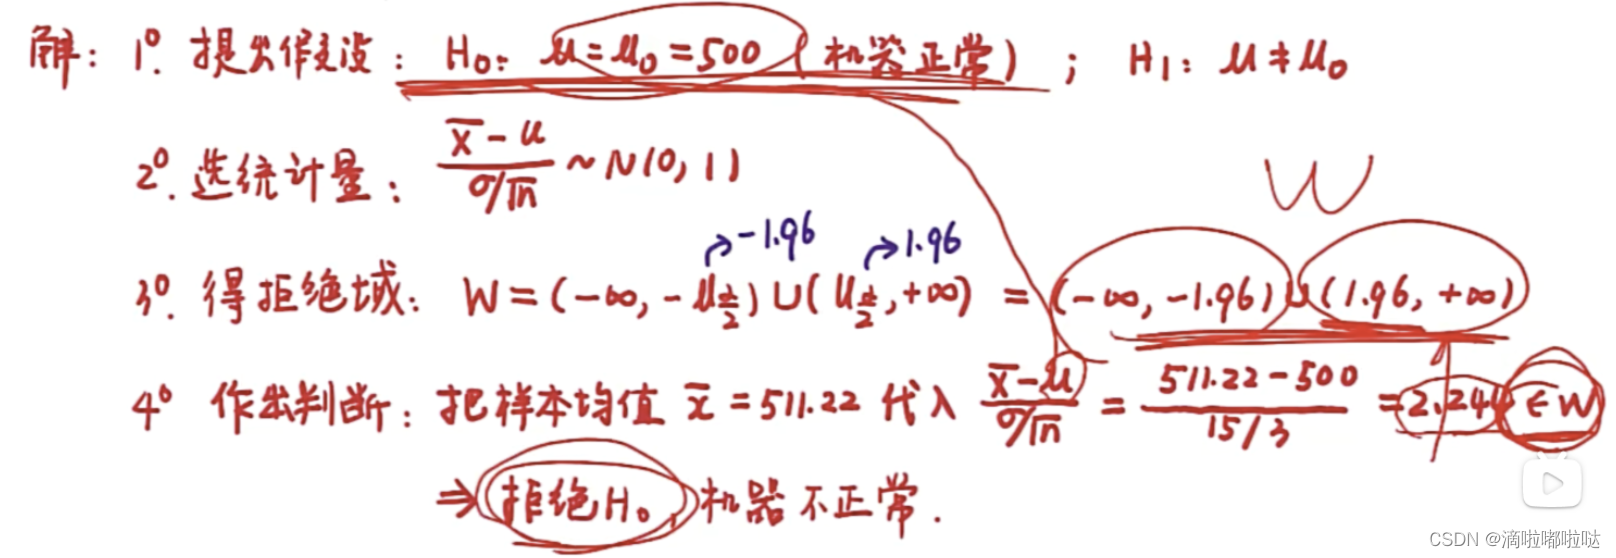 解: 1°. 提出假设: H₀: μ=μ₀=500 (机器正常) ; H₁: μ≠μ₀
2°. 选统计量: (x̄-u)/(σ/√n) ~ N(0, 1)
W
-1.96 1.96
3°. 得拒绝域: W=(-∞, -μ_{α/2})∪(μ_{α/2}, +∞) = (-∞, -1.96)∪(1.96, +∞)
4° 作出判断: 把样本均值 x̄=511.22 代入 (x̄-μ)/(σ/√n) = (511.22-500)/(15/3) = 2.244 ∈W
⇒ 拒绝H₀, 机器不正常.
CSDN @滴啦嘟啦哒